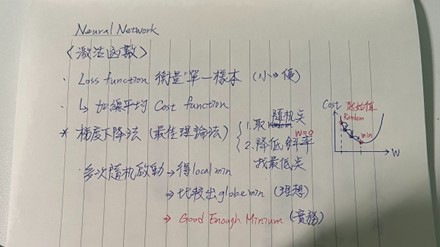 Neural Network
<激活函數>
· Loss function 衡量"單一樣本 (小→優)
· ↳ 加總平均 Cost function
* 梯度下降法 (最佳理論法) { 1. 取隨机点 W=0
2. 降低斜率
找最低点
· 多次隨机啟動 → 得 local min
→ 比較出 globe min (理想)
→ Good Enough Minium (實務)
Cost 起始值
Random
min
W